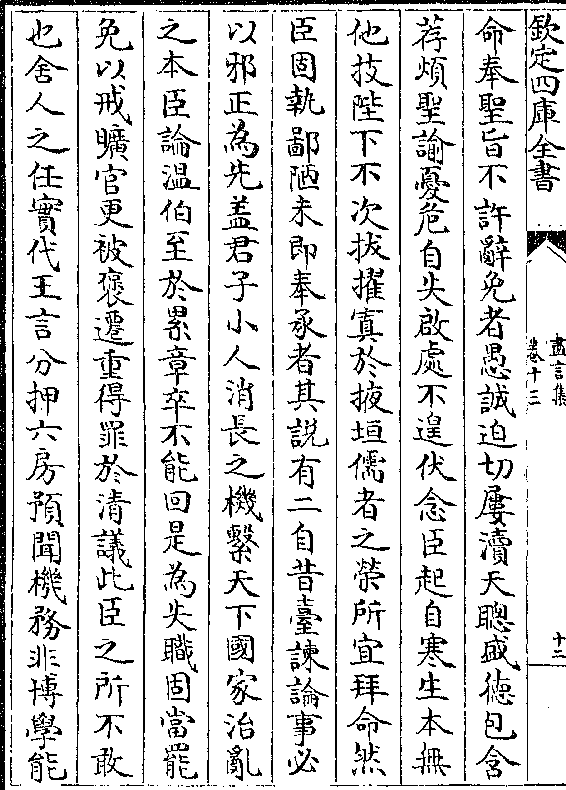 欽定四庫全書
盡言集
卷十三
十二
命奉聖旨不許辭免者愚誠迫切屢瀆天聰盛德包含
荐煩聖諭憂危自失啟處不遑伏念臣起自寒生本無
他技陛下不次拔擢寘於掖垣儒者之榮所宜拜命然
臣固執鄙陋未即奉承者其說有二自昔臺諫論事必
以邪正為先盖君子小人消長之機繫天下國家治亂
之本臣論温伯至於累章卒不能回是為失職固當罷
免以戒曠官更被褒遷重得罪於清議此臣之所不敢
也舍人之任實代王言分押六房預聞機務非博學能